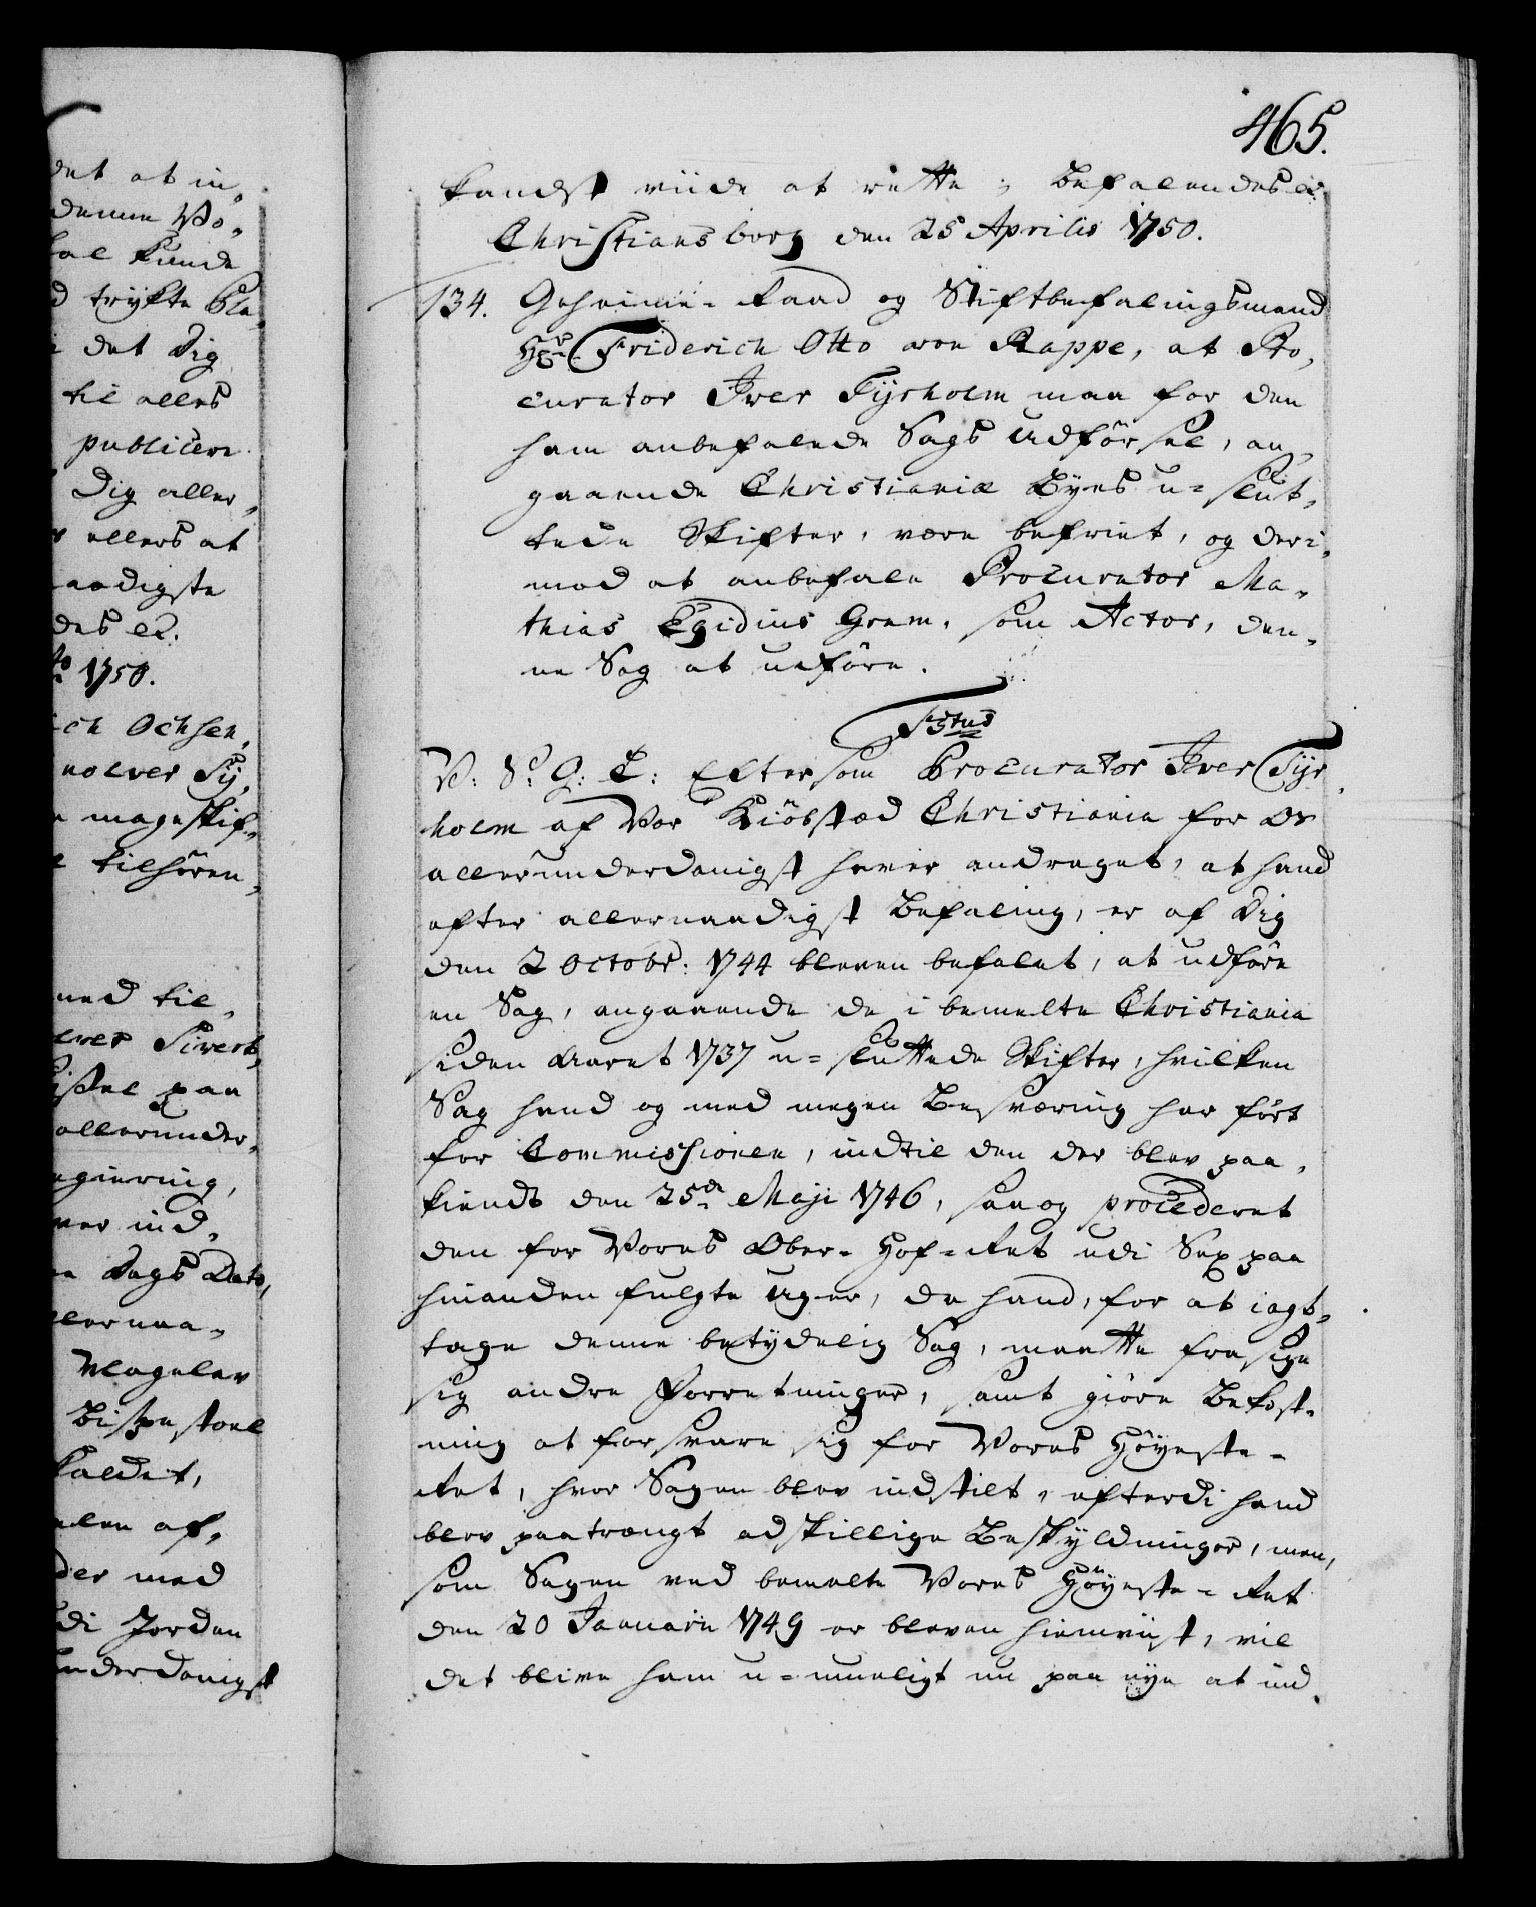 det at in,
denne Vo,
kunde
trykte Pla,
det Dig
til alles
publicere
Dig aller,
ellers at
naadigste
des &c.
1750.
ich Ochsen,
mageskif,
tilhören,
ned til,
Sivert,
paa
allerunder,
egiering,
ver ind,
Dags Dato,
allernaa,
Magelav
Bispestoel
kaldet,
alen af,
der med
udi Jorden
underdanigst
465.
kandst viide at rette; Befalendes &c.
Christiansborg den 25 Aprilis 1750.
134. Geheime-Raad og Stiftbefalingsmand
Hr. Friderich Otto von Rappe, at Pro,
curator Iver Tyrholm maa for den
ham anbefalede Sags Udförsel, an,
gaaende Christianiæ Byes u-slut,
tede Skifter, være befriet, og deri,
mod at anbefale Procurator Ma,
thias Egidius Gram, som Actor, den,
ne Sag at udföre.
F5tus
V: S: G: T: Eftersom Procurator Iver Tyr,
holm af Vor Kiöbstæd Christiania for Os
allerunderdanigst haver andraget, at hand
efter allernaadigst Befaling, er af Dig
den 2 Octobr: 1744 bleven befalet, at udföre
en Sag, angaaende de i bemelte Christiania
siden Aaret 1737 u-sluttede Skifter, hvilken
Sag hand og med megen Besværing har fört
for Commissionen, indtil den der blev paa,
kiendt den 25de Maji 1746, saa og procederet
den for Vores Ober-Hof-Ret udi Sex paa
hinanden fulgte Uger, da hand, for at iagt,
tage denne betydelig Sag, maatte frasige
sig andre Forretninger, samt giöre Bekost,
ning at forsvare sig for Vores Höyeste-
Ret, hvor Sagen blev indstilt, efterdi hand
blev paatrængt adskillige Beskyldninger, men,
som Sagen ved bemelte Vores Höyeste-Ret
den 20 Januarii 1749 er bleven hiemviist, vil
det blive ham u-mueligt nu paa nye at ind,